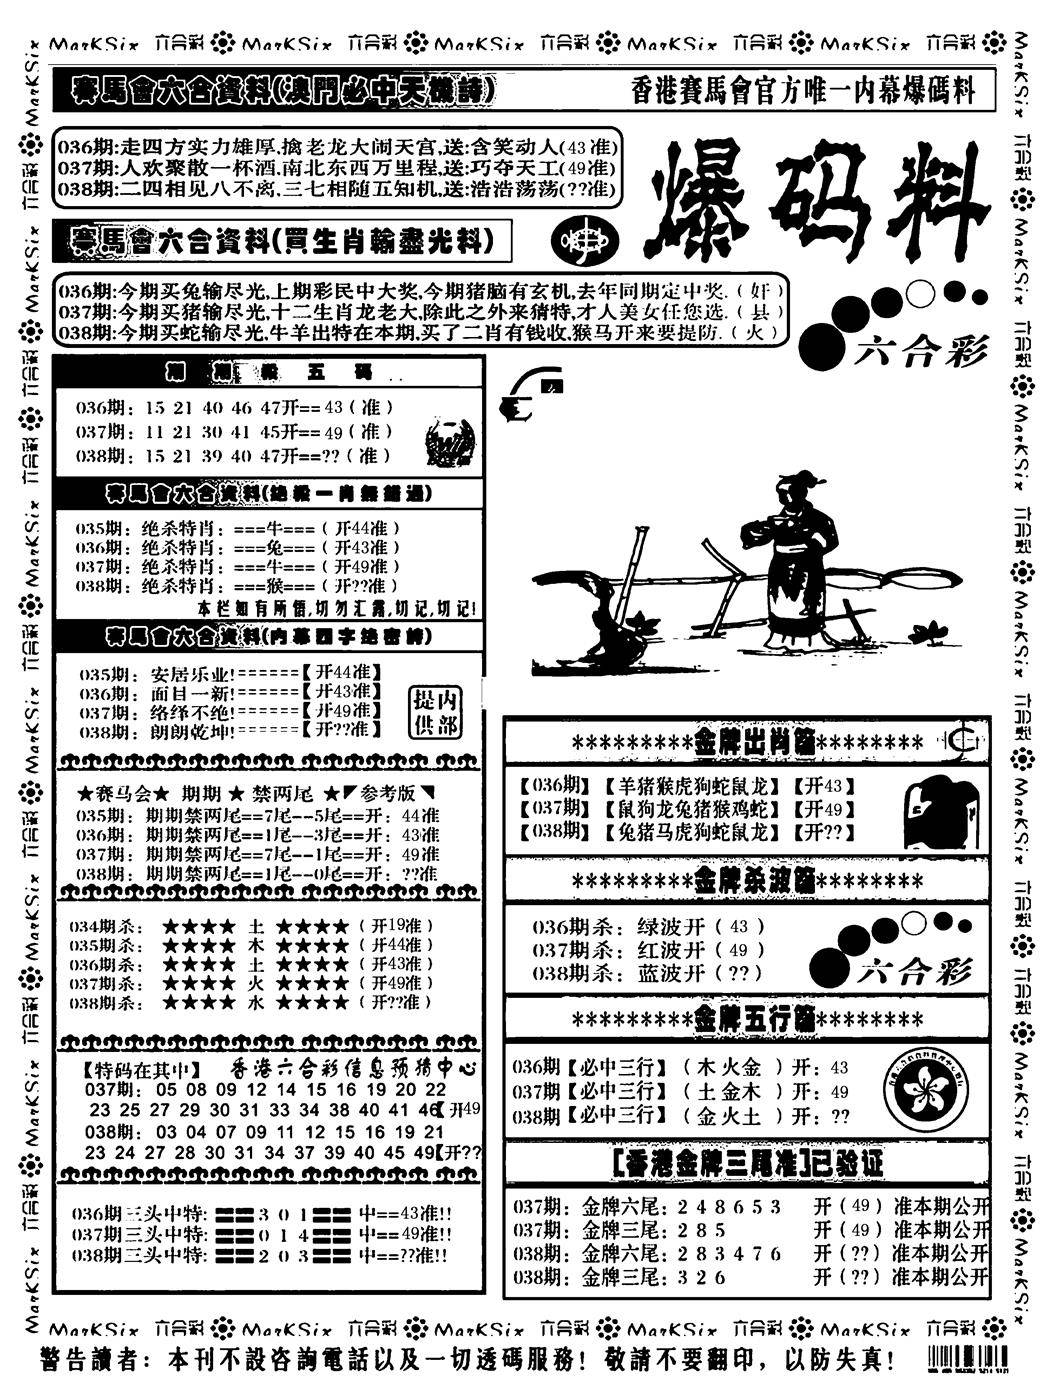 MarKSix 六合彩 MarKSix 六合彩 MarKSix 六合彩 MarKSix 六合彩 MarKSix 六合彩
賽馬會六合資料(澳門必中天機詩)
香港賽馬會官方唯一内幕爆碼料
036期:走四方实力雄厚,擒老龙大闹天宫,送:含笑动人(43准)
037期:人欢聚散一杯酒,南北东西万里程,送:巧夺天工(49准)
038期:二四相见八不离,三七相随五知机,送:浩浩荡荡(??准)
爆码料
賽馬會六合資料(買生肖輸盡光料)
036期:今期买兔输尽光,上期彩民中大奖,今期猪脑有玄机,去年同期定中奖.(奸)
037期:今期买猪输尽光,十二生肖龙老大,除此之外来猜特,才人美女任您选.(县)
038期:今期买蛇输尽光,牛羊出特在本期,买了二肖有钱收,猴马开来要提防.(火)
六合彩
期期殺五碼
036期: 15 21 40 46 47开==43(准)
037期: 11 21 30 41 45开==49(准)
038期: 15 21 39 40 47开==??(准)
賽馬會六合資料(绝殺一肖無錯過)
035期: 绝杀特肖: ===牛===(开44准)
036期: 绝杀特肖: ===兔===(开43准)
037期: 绝杀特肖: ===牛===(开49准)
038期: 绝杀特肖: ===猴===(开??准)
本栏如有所悟,切勿汇露,切记,切记!
賽馬會六合資料(内幕四字绝密詩)
035期: 安居乐业!======【开44准】
036期: 面目一新!======【开43准】
037期: 络绎不绝!======【开49准】
038期: 朗朗乾坤!======【开??准】
内部提供
★赛马会★ 期期 ★ 禁两尾 ★参考版
035期: 期期禁两尾==7尾--5尾==开: 44准
036期: 期期禁两尾==1尾--3尾==开: 43准
037期: 期期禁两尾==7尾--1尾==开: 49准
038期: 期期禁两尾==1尾--0尾==开: ??准
034期杀: ★★★★ 土 ★★★★(开19准)
035期杀: ★★★★ 木 ★★★★(开44准)
036期杀: ★★★★ 土 ★★★★(开43准)
037期杀: ★★★★ 火 ★★★★(开49准)
038期杀: ★★★★ 水 ★★★★(开??准)
【特码在其中】 香港六合彩信息预猜中心
037期: 05 08 09 12 14 15 16 19 20 22
23 25 27 29 30 31 33 34 38 40 41 46【开49
038期: 03 04 07 09 11 12 15 16 19 21
23 24 27 28 30 31 34 37 39 40 45 49【开??
036期三头中特: 3 0 1 中==43准!!
037期三头中特: 0 1 4 中==49准!!
038期三头中特: 2 0 3 中==??准!!
*********金牌出肖篇********
【036期】【羊猪猴虎狗蛇鼠龙】【开43】
【037期】【鼠狗龙兔猪猴鸡蛇】【开49】
【038期】【兔猪马虎狗蛇鼠龙】【开??】
*********金牌杀波篇********
036期杀: 绿波开(43)
037期杀: 红波开(49)
038期杀: 蓝波开(??)
六合彩
*********金牌五行篇********
036期【必中三行】(木火金)开: 43
037期【必中三行】(土金木)开: 49
038期【必中三行】(金火土)开: ??
[香港金牌三尾准]已验证
037期: 金牌六尾: 2 4 8 6 5 3 开(49)准本期公开
037期: 金牌三尾: 2 8 5 开(49)准本期公开
038期: 金牌六尾: 2 8 3 4 7 6 开(??)准本期公开
038期: 金牌三尾: 3 2 6 开(??)准本期公开
MarKSix 六合彩 MarKSix 六合彩 MarKSix 六合彩 MarKSix 六合彩 MarKSix 六合彩
警告讀者: 本刊不設咨詢電話以及一切透碼服務! 敬請不要翻印, 以防失真!